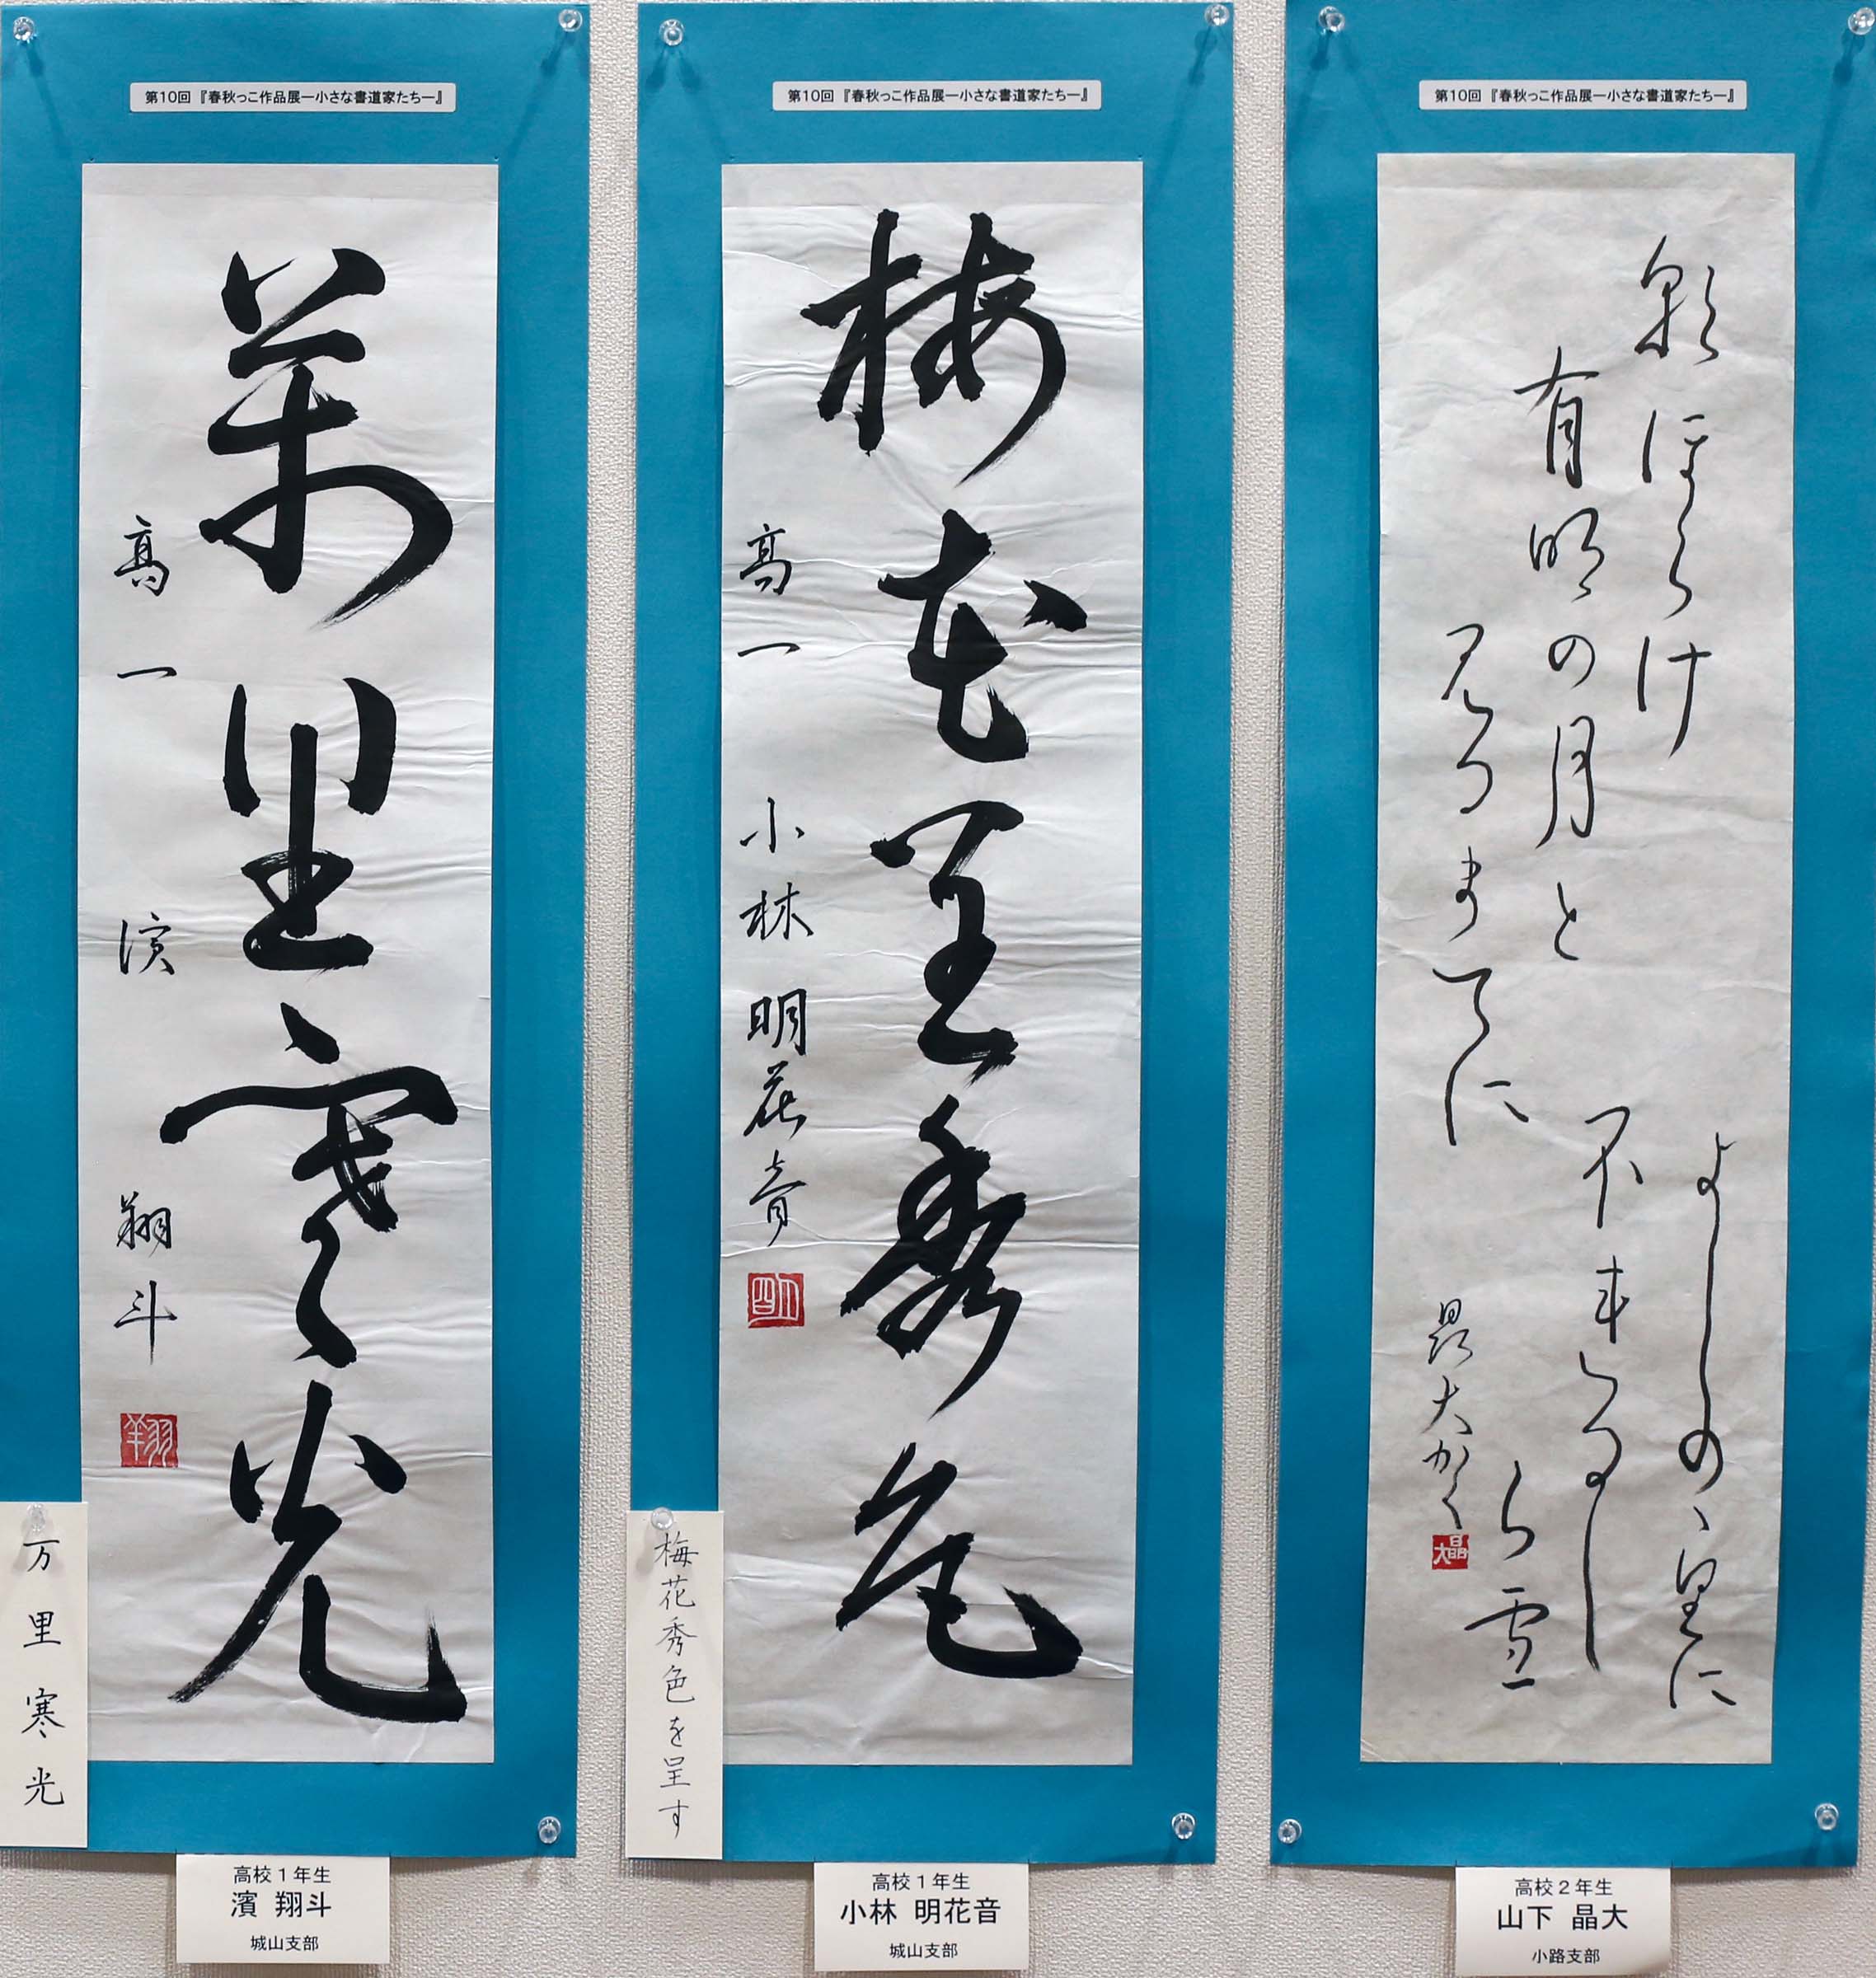 第10回『春秋っこ作品展―小さな書道家たち―』
萬里寒光
高一 濱 翔斗
翔
万里寒光
高校1年生
濱 翔斗
城山支部
第10回『春秋っこ作品展―小さな書道家たち―』
梅花呈秀色
高一 小林明花音
明
梅花秀色を呈す
高校1年生
小林 明花音
城山支部
第10回『春秋っこ作品展―小さな書道家たち―』
朝ほらけ
有明の月と
見るまてに
よしのゝ里に
不れるし
ら雪
晶大かく
晶大
高校2年生
山下 晶大
小路支部